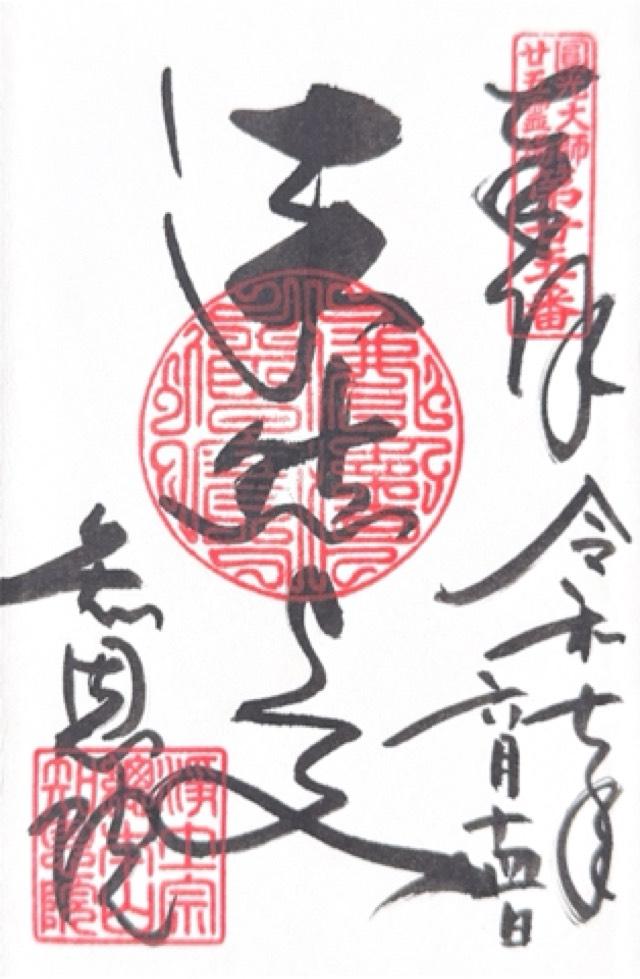 圓光大師
廿五霊場
第廿五番
奉拝
令和七年
六月十四日
法然上人
知恩院
淨土宗
總本山
知恩院